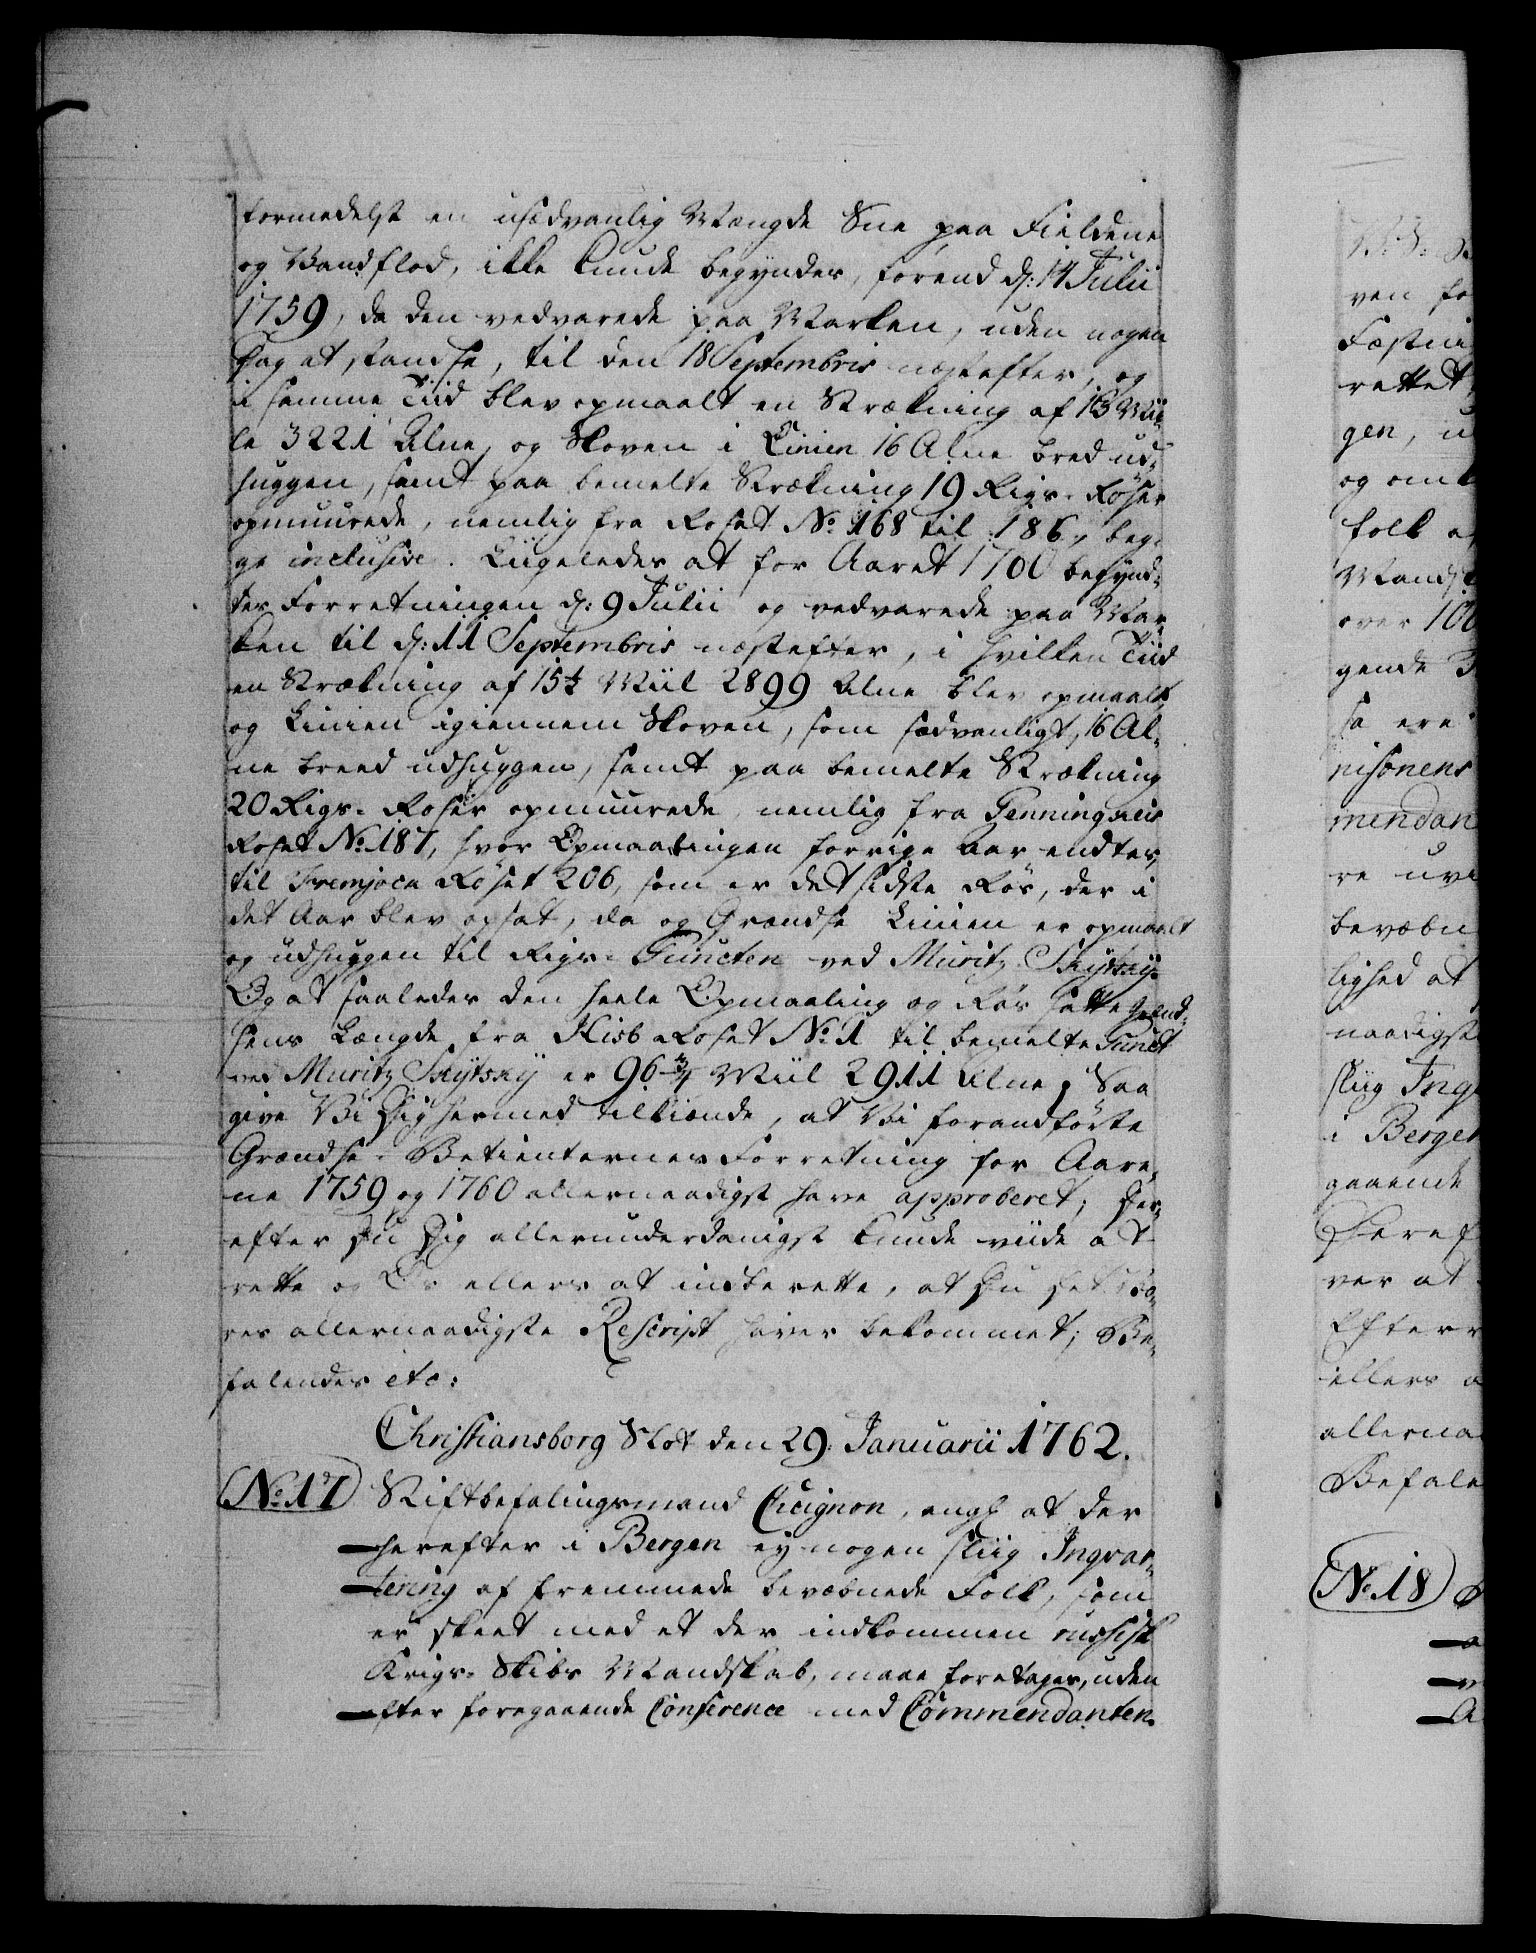 formedelst en usædvanlig Mængde Sne paa Fieldene
og Vandflod, ikke kunde begyndes, forend d: 14 Julii
1759, da den vedvarede paa Marken, uden nogen
Dag at standse, til den 18 Septembris næstefter, og
i samme Tiid blev opmaalt en Strækning af 13 Mii-
le 3221 Alne, og Skoven i Linien 16 Alne bred ud-
huggen, samt paa bemelte Strækning 19 Rigs-Röser
opmuurede, nemlig fra Roset No. 168 til 186, beg-
ge inclusive. Liigeledes at for Aaret 1760 begynd-
tes Forretningen d: 9 Julii og vedvarede paa Mar-
ken til d: 11 Septembris næstefter, i hvilken Tiid
en Strækning af 15½ Miil 2899 Alne blev opmaalt,
og Linien igiennem Skoven, som sædvanligt, 16 Al-
ne breed udhuggen, samt paa bemelte Strækning
20 Rigs-Roser opmuurede, nemlig fra
Roset No. 187, hvor Opmaalingen forrige Aar endtes,
til Fremjoca Röset 206, som er det sidste Rös, der i
det Aar blev opsat, da og Grændse Linien er opmaalt
og udhuggen til Rigs-Puncten ved Muritz Skytsky.
Og at saaledes den heele Opmaaling og Rös satte Grænd-
sens Længde fra Roset No. 1 til bemelte Punct
ved Muritz Skytsky er 96¾ Miil 2911 Alne; Saa
give Vi Dig hermed tilkiende, at Vi forandförte
Grændse-Betienternes Forretning for Aare-
ne 1759 og 1760 allernaadigst have approberet; Her-
efter Du Dig allerunderdanigst kunde viide at
rette og Os ellers at indberette, at Du det Vo-
res allernaadigste Rescript haver bekommet; Be-
falendes etc:
Christiansborg Slot den 29. Januarii 1762.
No. 17 Stiftbefalingsmand Cicignon, angl. at der
herefter i Bergen ey nogen sliig Inqvar-
tering af fremmede bevæbnede Folk, som
er skeet med et der indkommen russisk
Krigs-Skibs Mandskab, maae foretages, uden
efter foregaaende Conference med Commendanten.
ven fo
Fæstni
rettet
gen, u
og om
folk a
Mandsk
over 100
gende
sa ere
nisonens
mendan
re uvi
bevæbn
lighed at
naadigst
sliig Inq
i Bergen
gaaende
Heref
ver at
Efterr
ellers a
allerna
Befale
No. 18